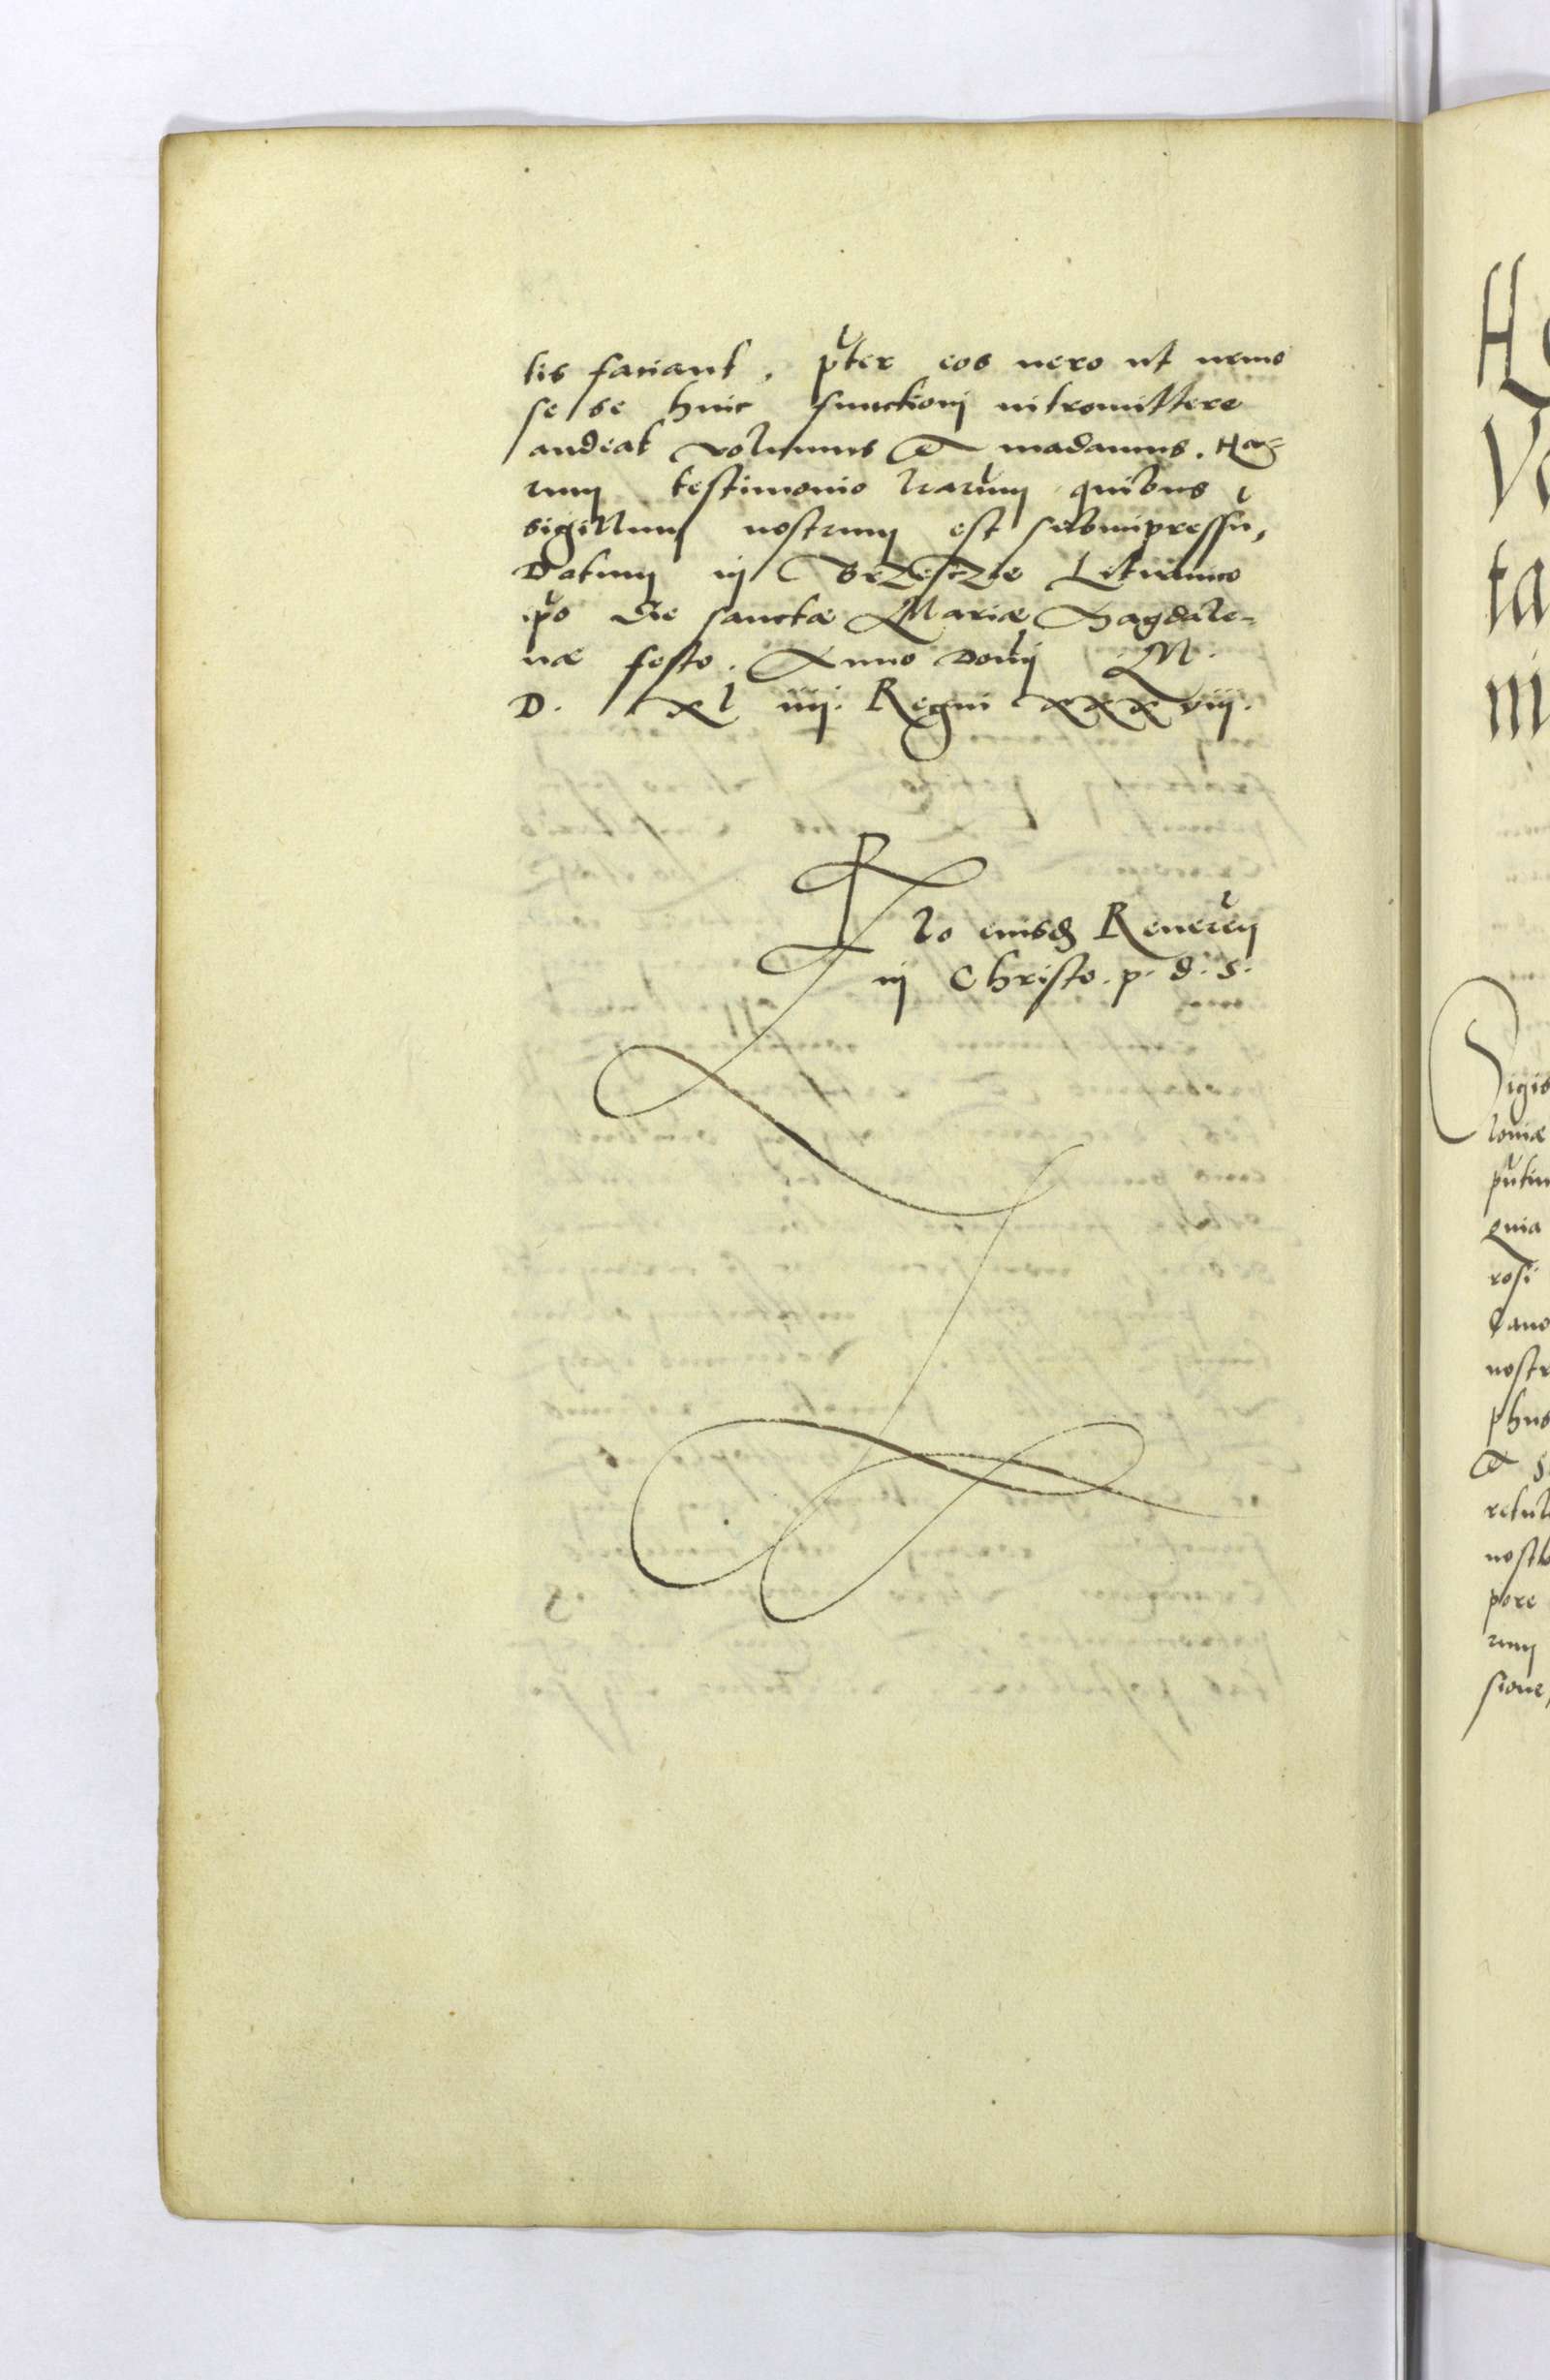 tis faciant. pter eos vero ut nemo
se se huic functioni intromittere
audeat volumus et madamus. Ha=
rum testimonio lrarum quibus
sigillum nostrum est subimpressu,
Datum in Brzesczie Lituanico
ipo die sanctae Mariae Magdale=
nae festo. Anno Domi M.
D. XL iiij. Regni xxxviij.
Rlo eiusd Reueren
in Christo. p. d. s.
Sigis
loniae
putin
quia
rosi
Cano
nostr
phus
et s
retul
nost
pore
rum
sione,